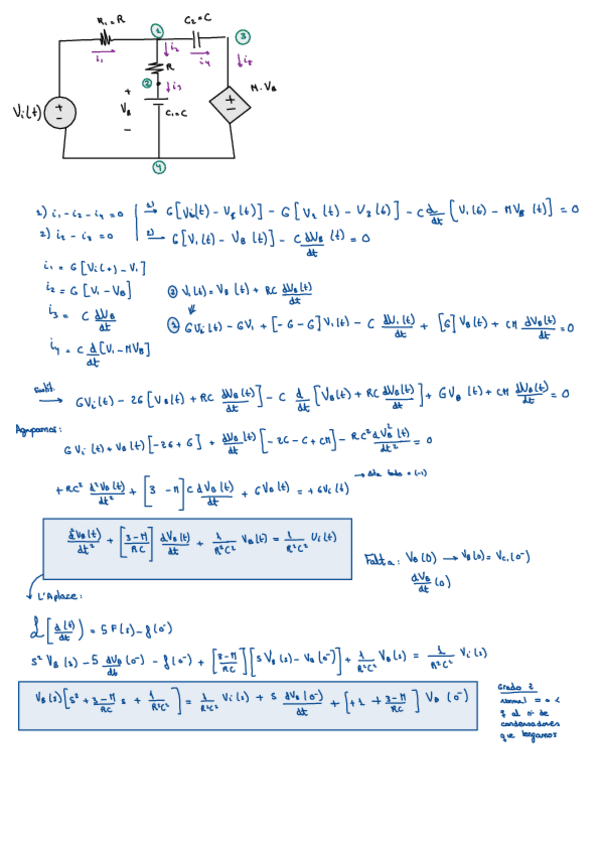 R₁=R
C₂=C
①
③
i₁
i₂
i₄
R
②
i₃
Vi(t)
+
VB
−
C₁=C
M·VB
④
1) i₁-i₂-i₄=0
2) i₂-i₃=0
G[V₁(t) - VB(t)] - C dVB/dt (t) = 0
i₁ = G[Vi(t)-V₁]
i₂ = G[V₁-VB]
i₃ = C dVB/dt
i₄ = C d/dt [V₁-MVB]
② V₁(t) = VB(t) + RC dVB(t)/dt
① GVi(t) - GV₁ + [-G-G]V₁(t) - C dV₁(t)/dt + [G]VB(t) + CM dVB(t)/dt = 0
GVi(t) - 2G[VB(t) + RC dVB(t)/dt] - C d/dt [VB(t) + RC dVB(t)/dt] + GVB(t) + CM dVB(t)/dt = 0
Agrupamos:
GVi(t) + VB(t)[-2G+G] + dVB(t)/dt [-2C-C+CM] - RC² dVB²(t)/dt² = 0
+RC² d²VB(t)/dt² + [3-M]C dVB(t)/dt + GVB(t) = +GVi(t)
d²VB(t)/dt² + [3-M/RC] dVB(t)/dt + 1/R²C² VB(t) = 1/R²C² Vi(t)
Falta: VB(0) → VB(0) = Vc₁(0⁻)
dVB/dt (0)
L'Aplace:
= SF(s) - f(0⁻)
s²VB(s) - S dVB/dt (0⁻) - f(0⁻) + [3-M/RC][sVB(s) - VB(0⁻)] + 1/R²C² VB(s) = 1/R²C² Vi(s)
VB(s)[s² + 3-M/RC s + 1/R²C²] = 1/R²C² Vi(s) + s dVB(0⁻)/dt + [+1 + 3-M/RC] VB(0⁻)
Grado 2
normal = o <
al nº de
condensadores
que tengamos